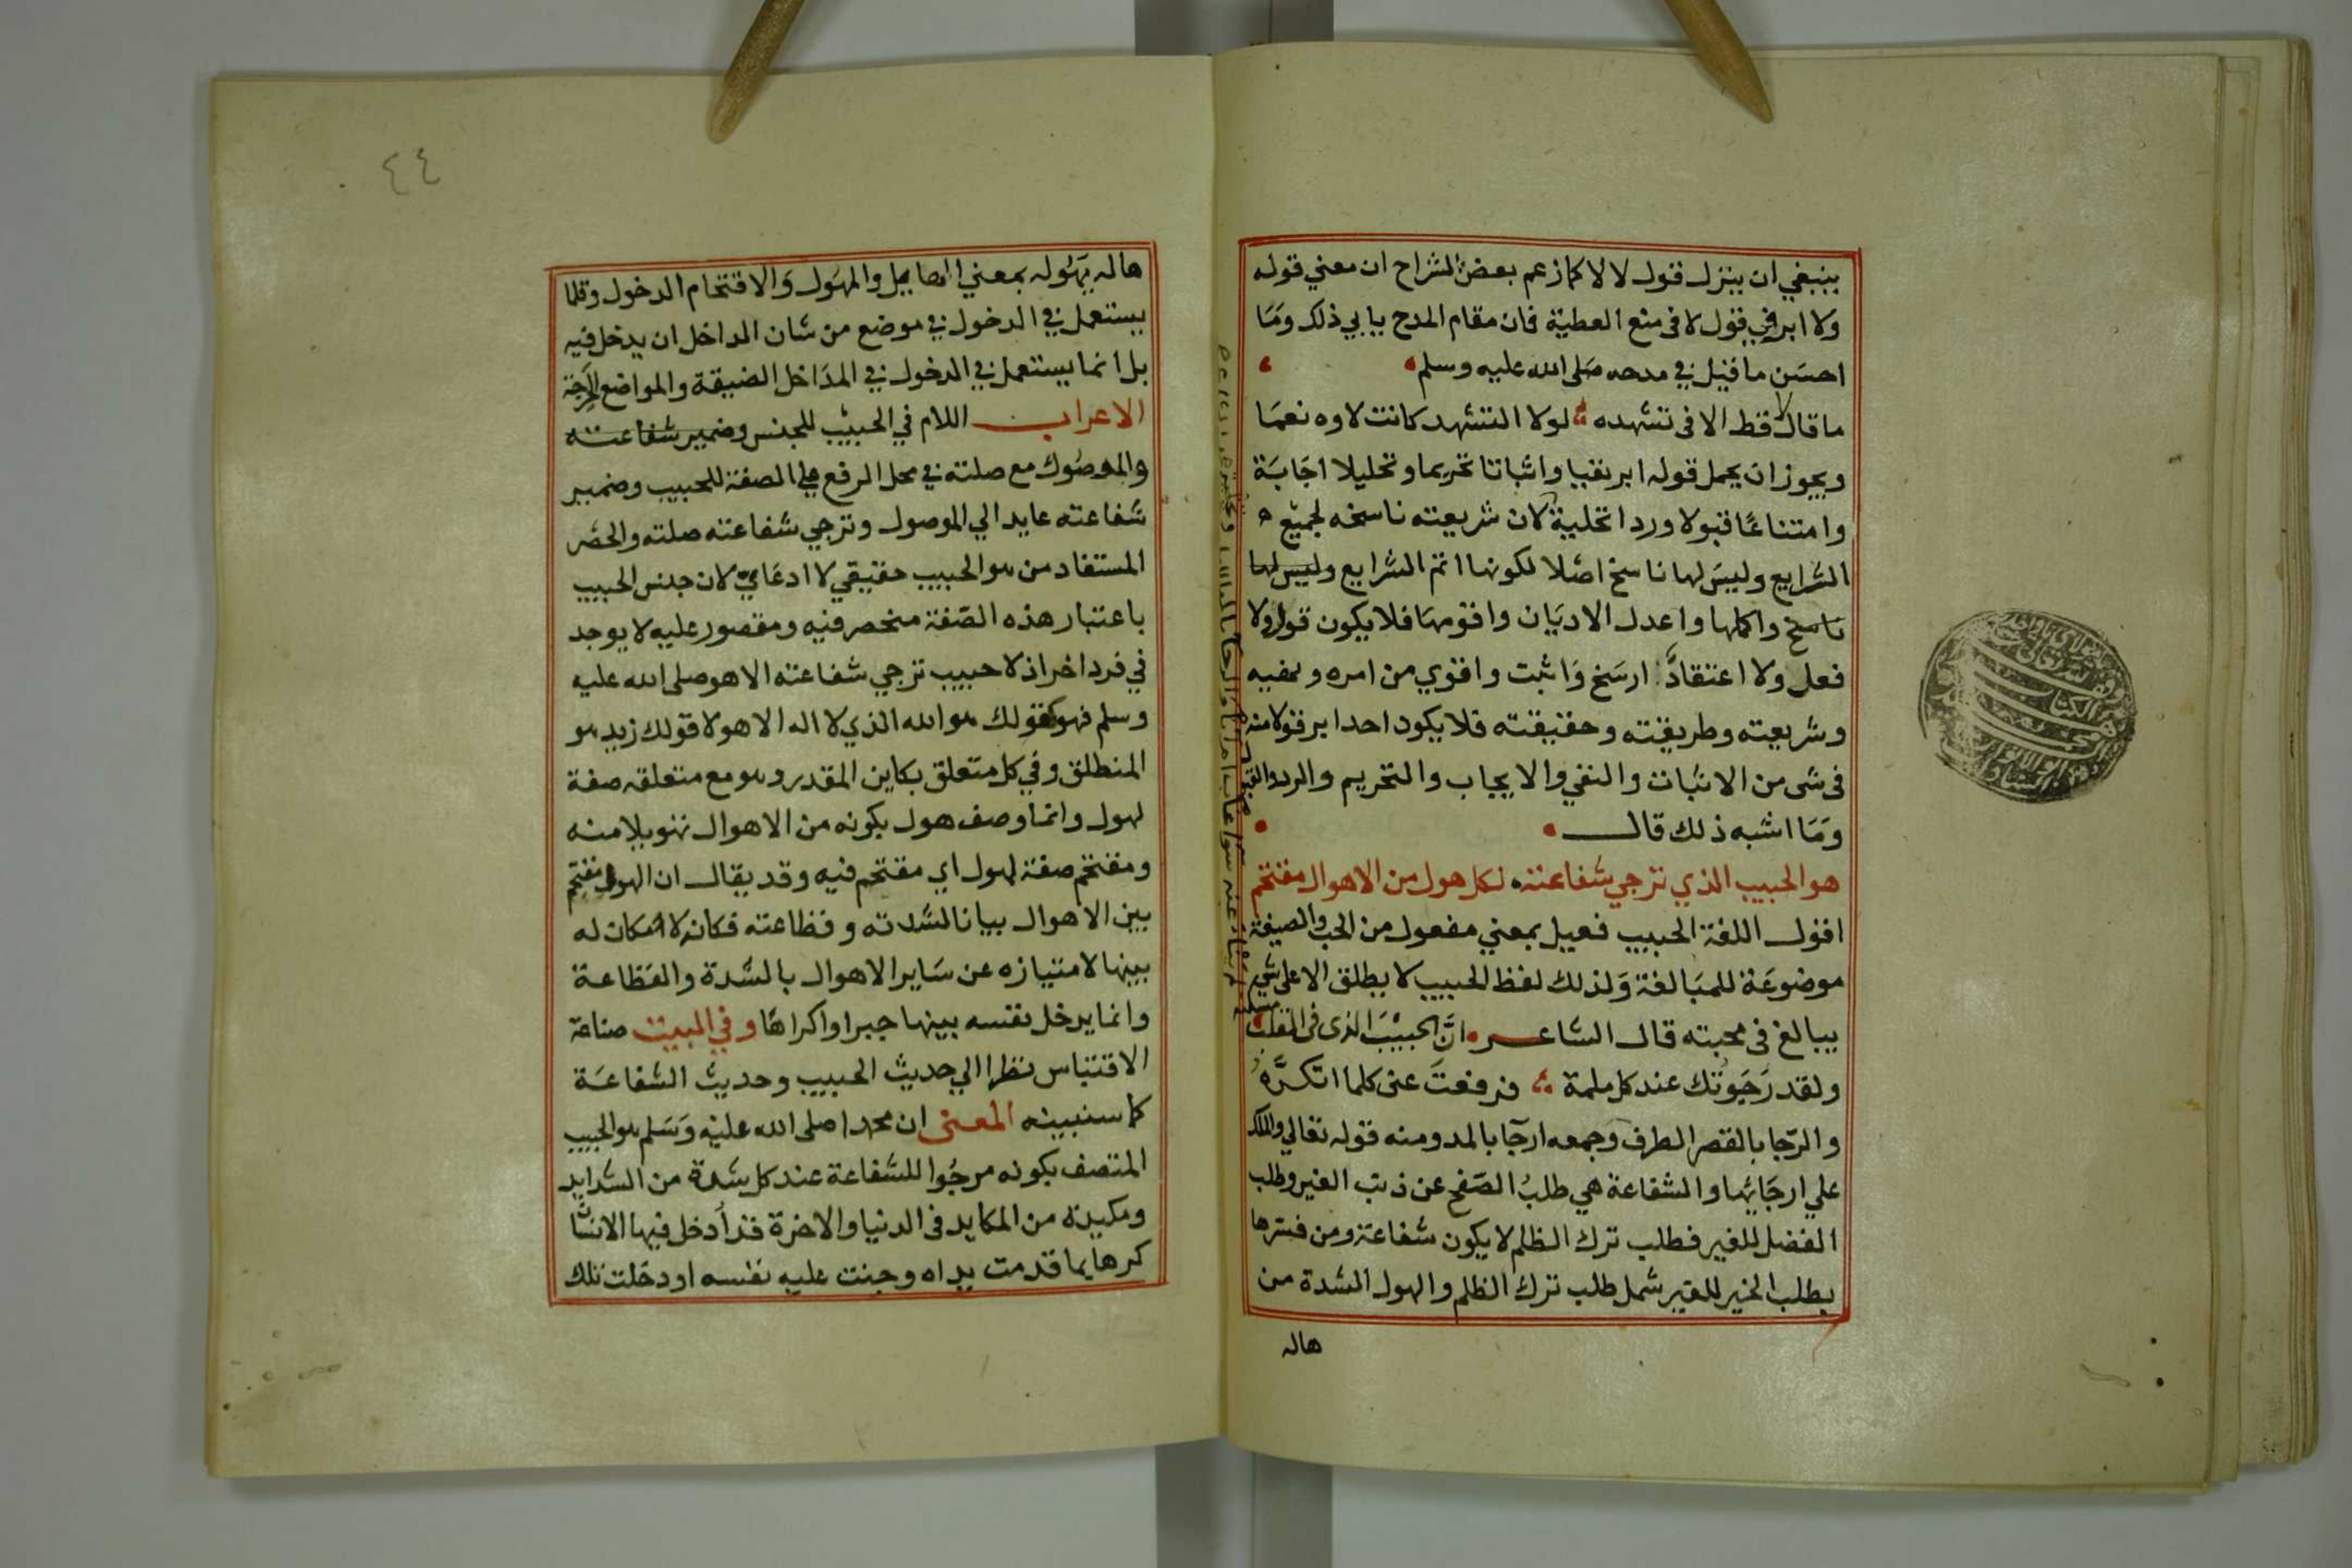 ينبغي ان ينزل قول لا لا كما زعم بعض الشراح ان معني قوله
ولا ابر في قول لا في منع العطية فان مقام المدح يابي ذلك وما
احسن ما قيل في مدحه صلى الله عليه وسلم
ما قال لا قط الا في تشهده لولا التشهد كانت لاوه نعما
ويجوز ان يحمل قوله ابر نفيا واثباتا تحريما وتحليلا اجابة
وامتناعا قبولا وردا تحلية لان شريعته ناسخه لجميع
الشرايع وليس لها ناسخ اصلا لكونها اتم الشرايع وليس لها
ناسخ واكملها واعدل الاديان واقومها فلا يكون قول ولا
فعل ولا اعتقاد ارسخ واثبت واقوي من امره ونهيه
وشريعته وطريقته وحقيقته فلا يكون احد ابر قولا منه
في شى من الاثبات والنفي والايجاب والتحريم والرد والقبول
وما اشبه ذلك قال
هو الحبيب الذي ترجي شفاعته لكل هول من الاهوال مقتحم
اقول اللغة الحبيب فعيل بمعني مفعول من الحب والصيغة
موضوعة للمبالغة ولذلك لفظ الحبيب لا يطلق الا على شي
يبالغ في محبته قال الشاعر ان الحبيب الذى فى القلب
ولقد رجوتك عند كل ملمة فرفعت عنى كلما اتكره
والرجا بالقصر الطرف وجمعه ارجا بالمد ومنه قوله تعالي والملك
علي ارجايها والشفاعة هي طلب الصفح عن ذنب الغير وطلب
الفضل للغير فطلب ترك الظلم لا يكون شفاعة ومن فسرها
بطلب الخير للغير شمل طلب ترك الظلم والهول الشدة من
هاله
٤٤
هاله يهوله بمعني الهايل والمهول والاقتحام الدخول وقلما
يستعمل في الدخول في موضع من شان الداخل ان يدخل فيه
بل انما يستعمل في الدخول في المداخل الضيقة والمواضع الحرجة
الاعراب اللام في الحبيب للجنس وضمير شفاعته
والموصول مع صلته في محل الرفع علي الصفة للحبيب وضمير
شفاعته عايد الي الموصول وترجي شفاعته صلته والحصر
المستفاد من هو الحبيب حقيقي لا ادعاي لان جنس الحبيب
باعتبار هذه الصفة منحصر فيه ومقصور عليه لا يوجد
في فرد اخر اذ لا حبيب ترجي شفاعته الا هو صلى الله عليه
وسلم فهو كقولك هو الله الذي لا اله الا هو لا قولك زيد هو
المنطلق وفي كل متعلق بكاين المقدر وهو مع متعلقه صفة
لهول وانما وصف هول بكونه من الاهوال تهويلا منه
ومقتحم صفة لهول اي مقتحم فيه وقد يقال ان الهول مقتحم
بين الاهوال بيانا لشدته وفظاعته فكانه لا امكان له
بينها لامتيازه عن ساير الاهوال بالشدة والفظاعة
وانما يدخل نفسه بينها جبرا واكراها وفي البيت صناعة
الاقتباس نظرا الي حديث الحبيب وحديث الشفاعة
كما سنبينه المعنى ان محمدا صلى الله عليه وسلم هو الحبيب
المتصف بكونه مرجوا للشفاعة عند كل شدة من الشدايد
ومكيدة من المكايد في الدنيا والاخرة قد أدخل فيها الانسا
كرها بما قدمت يداه وجنت عليه نفسه او دخلت تلك